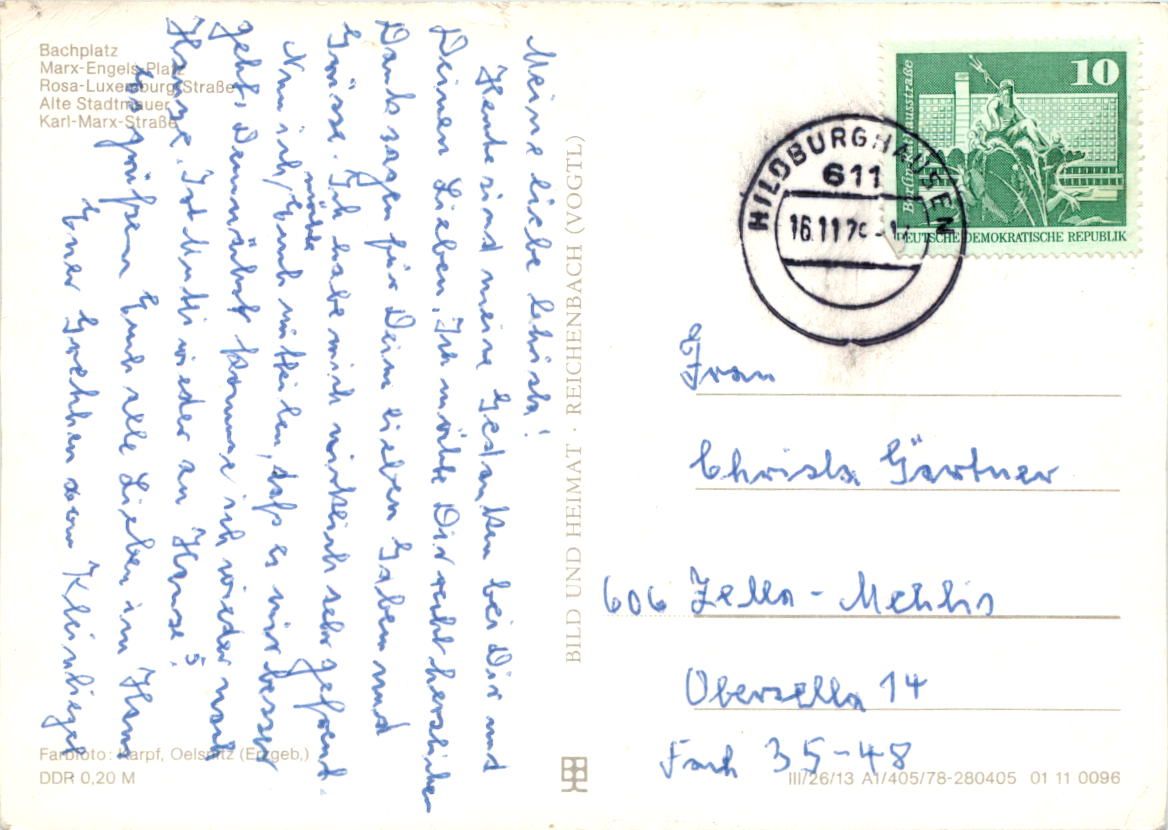 Bachplatz
Marx-Engels-Platz
Rosa-Luxemburg-Straße
Alte Stadtmauer
Karl-Marx-Straße
Meine liebe Christa!
Heute sind meine Gedanken bei Dir und
Deinen Lieben, Ich möchte Dir recht herzlichen
Dank sagen für Deine lieben Gaben und
Grüsse. Ich habe mich wirklich sehr gefreut.
Nun möchte ich Euch mitteilen, daß es mir besser
geht. Demnächst komme ich wieder nach
Hause. Ist Mutti wieder zu Hause?
Es grüßen Euch alle Lieben im Haus
Euer Gretchen vom
Farbfoto: Karpf, Oelsnitz (Erzgeb.)
DDR 0,20 M
BILD UND HEIMAT · REICHENBACH (VOGTL)
10
DEUTSCHE DEMOKRATISCHE REPUBLIK
HILDBURGHAUSEN
611
16.11.79
Frau
Christa Gärtner
606 Zella-Mehlis
Oberzella 14
Fach 35-48
III/26/13 A1/405/78-280405 01 11 0096